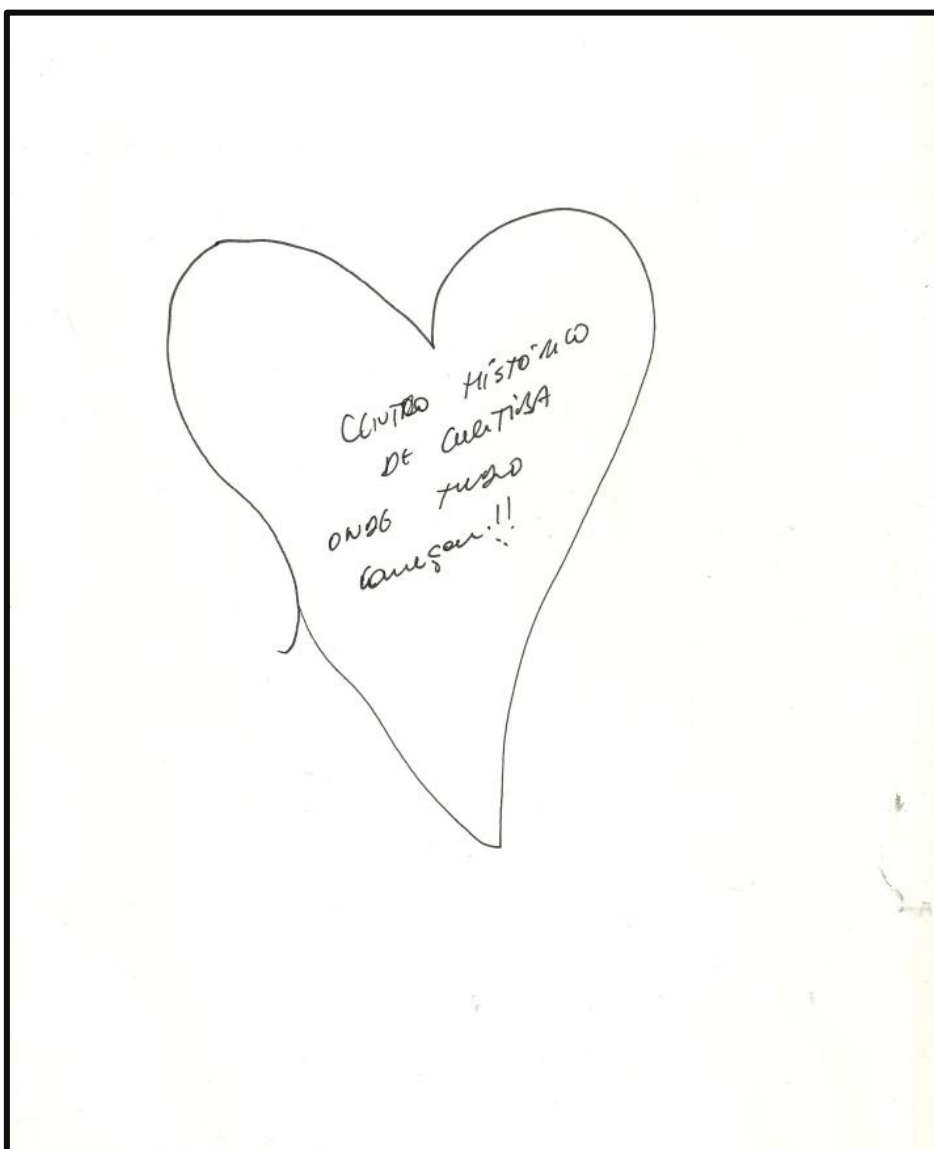 CENTRO HISTÓRICO
DE CURITIBA
ONDE TUDO
começou!!!